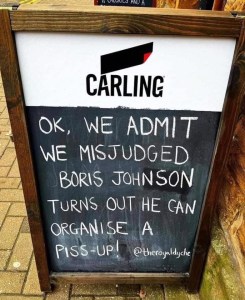 CARLING
OK, WE ADMIT
WE MISJUDGED
BORIS JOHNSON
TURNS OUT HE CAN
ORGANISE A
PISS-UP! @theroyaldyche